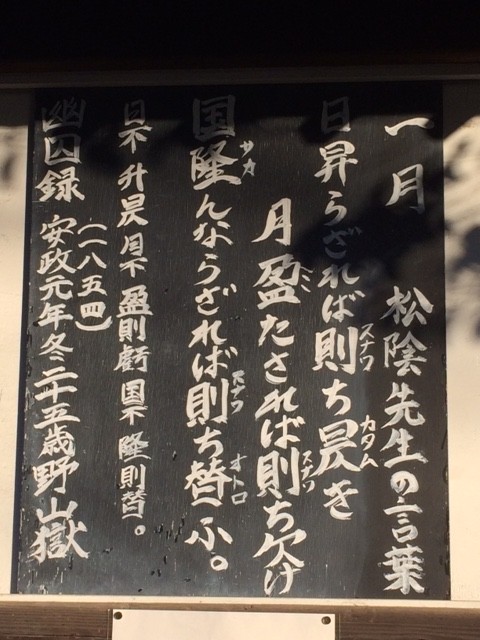 一月 松陰先生の言葉
日昇らざれば則ち昃き
月盈たざれば則ち欠け
国隆んならざれば則ち替ふ。
日不升昃月不盈則虧国不隆則替。
幽囚録 安政元年冬二十五歳野山獄
(一八五四)